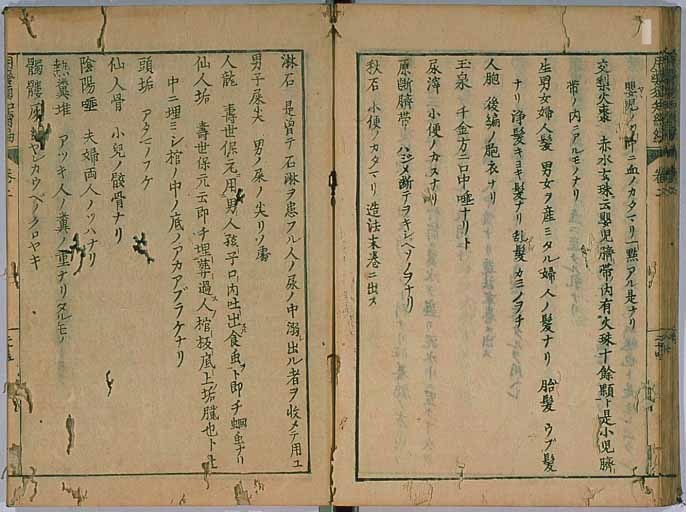 嬰児ノ
中ニ血ノカタマリ一點アル是ナリ
交梨火棗 赤水玄珠云嬰児臍帯内有火珠十餘顆ト是小児臍
帯ノ内ニアルモノナリ
生男女婦人髪 男女ヲ産ミタル婦人ノ髪ナリ 胎髪 ウブ髪
ナリ 浄髪キヨキ髪ナリ 乱髪 カミノヲチ
人胞 後編ノ胞衣ナリ
玉泉 千金方ニ口中唾ナリト
尿滓 小便ノカスナリ
原断臍帯 ハジメ断テヲキシヘソノヲナリ
秋石 小便ノカタマリ 造法末巻ニ出ス
淋石 是曽テ石淋ヲ患フル人ノ尿ノ中溺出ル者ヲ收メテ用ユ
男子屎尖 男ノ屎ノ尖リソ
人龍 壽世保元用男人孩子口内吐出食虫ト即チ蛔虫ナリ
仙人垢 壽世保元云即チ埋葬過人棺板底上垢膩也ト土
中ニ埋ミシ棺ノ中ノ底ノアカアブラケナリ
頭垢 アタマノフケ
仙人骨 小兒ノ骸骨ナリ
陰陽唾 夫婦両人ノツハナリ
熱糞堆 アツキ人ノ糞ノ重ナリタルモノ
髑髏